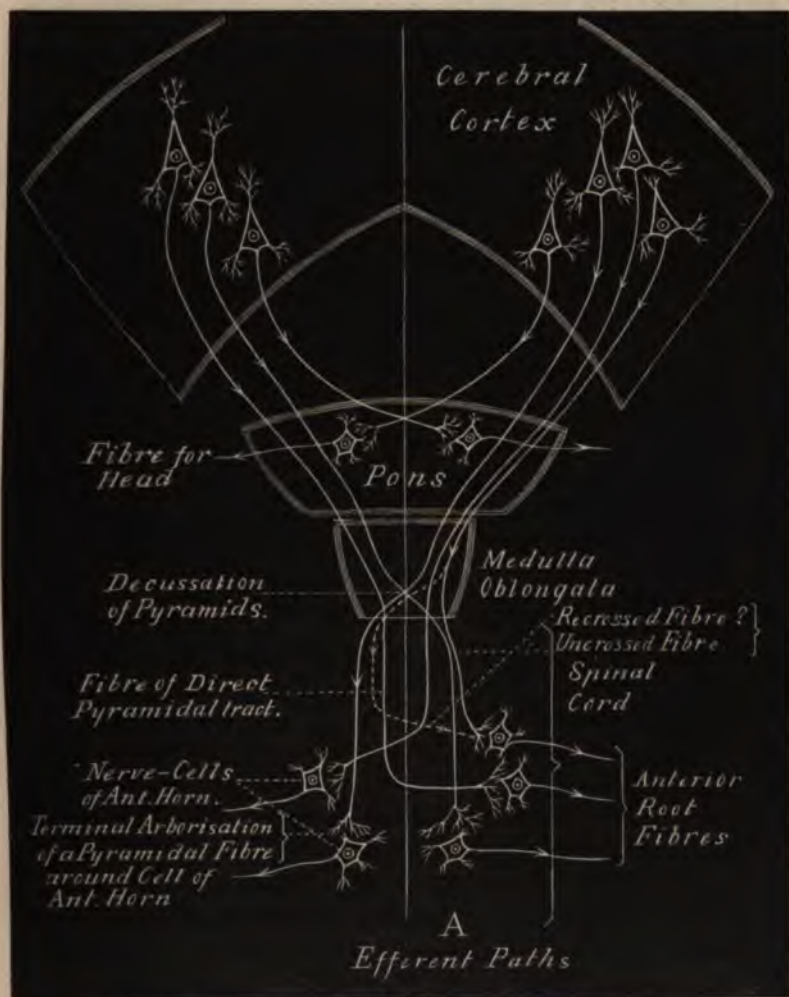 Cerebral
Cortex
Fibre for
Head
Pons
Decussation
of Pyramids.
Medulla
Oblongata
Recrossed Fibre ?
Uncrossed Fibre
Spinal
Cord
Fibre of Direct
Pyramidal tract.
Nerve-Cells
of Ant. Horn.
Terminal Arborisation
of a Pyramidal Fibre
around Cell of
Ant. Horn
Anterior
Root
Fibres
A
Efferent Paths